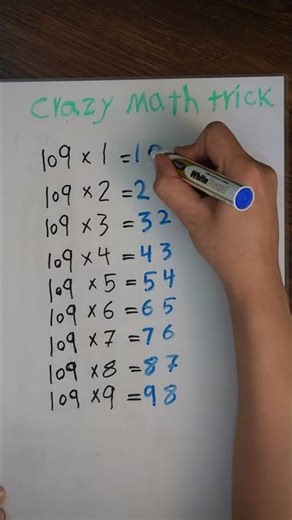 crazy math trick
109 × 1 = 10
109 × 2 = 2
109 × 3 = 32
109 × 4 = 43
109 × 5 = 54
109 × 6 = 65
109 × 7 = 76
109 × 8 = 87
109 × 9 = 98
White Board